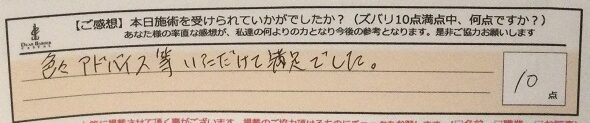 【ご感想】本日施術を受けられていかがでしたか？（ズバリ10点満点中、何点ですか？）
あなた様の率直な感想が、私達の何よりの力となり今後の参考となります。是非ご協力お願いします
色々アドバイス等いただけて満足でした。
10
点